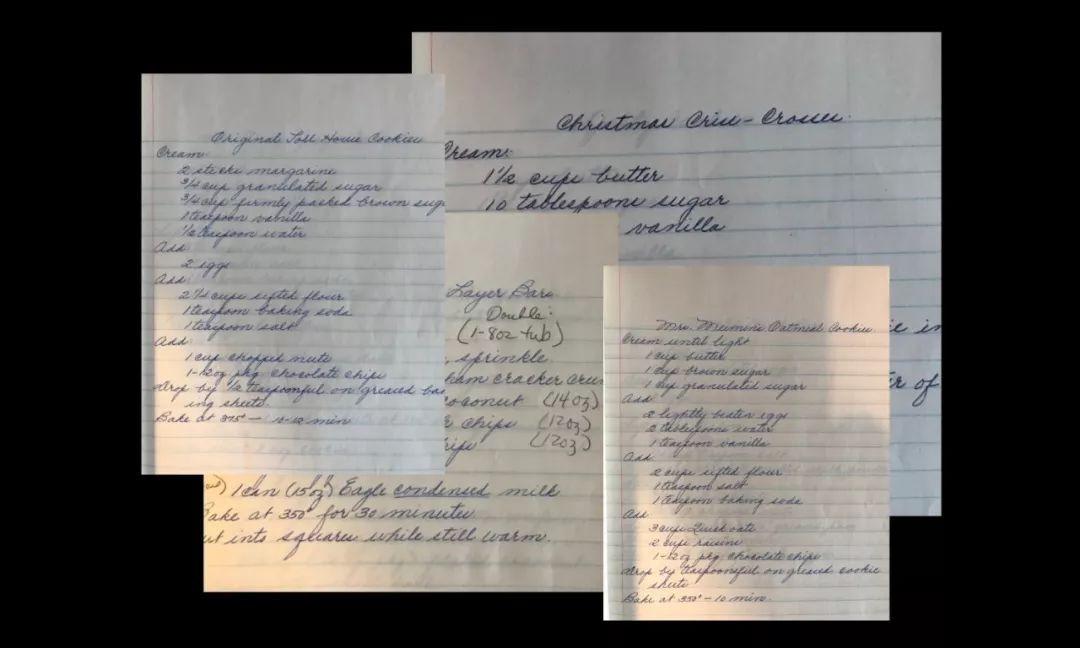 Original Toll House Cookies
Cream:
2 sticks margarine
3/4 cup granulated sugar
3/4 cup firmly packed brown sug
1 teaspoon vanilla
1/2 teaspoon water
Add:
2 eggs
Add:
2 1/4 cups sifted flour
1 teaspoon baking soda
1 teaspoon salt
Add:
1 cup chopped nuts
1-12oz pkg chocolate chips
Drop by 1/2 teaspoonful on greased bak
ing sheets.
Bake at 375° - 10-12 min
Christmas Criss-Crosses
Cream:
1 1/2 cups butter
10 tablespoons sugar
vanilla
in
of
Layer Bars
Double:
(1-8oz tub)
sprinkle
ham cracker crum
coconut (14oz)
chips (12oz)
chips (12oz)
1 can (15oz) Eagle condensed milk
Bake at 350° for 30 minutes
ut into squares while still warm.
Mrs. Oatmeal Cookies
Cream until light
1 cup butter
1 cup brown sugar
1 cup granulated sugar
Add:
2 lightly beaten eggs
2 tablespoons water
1 teaspoon vanilla
Add:
2 cups sifted flour
1 teaspoon salt
1 teaspoon baking soda
Add:
3 cups Quick oats
2 cups raisins
1-12oz pkg chocolate chips
Drop by teaspoonful on greased cookie
sheets
Bake at 350° - 10 min.